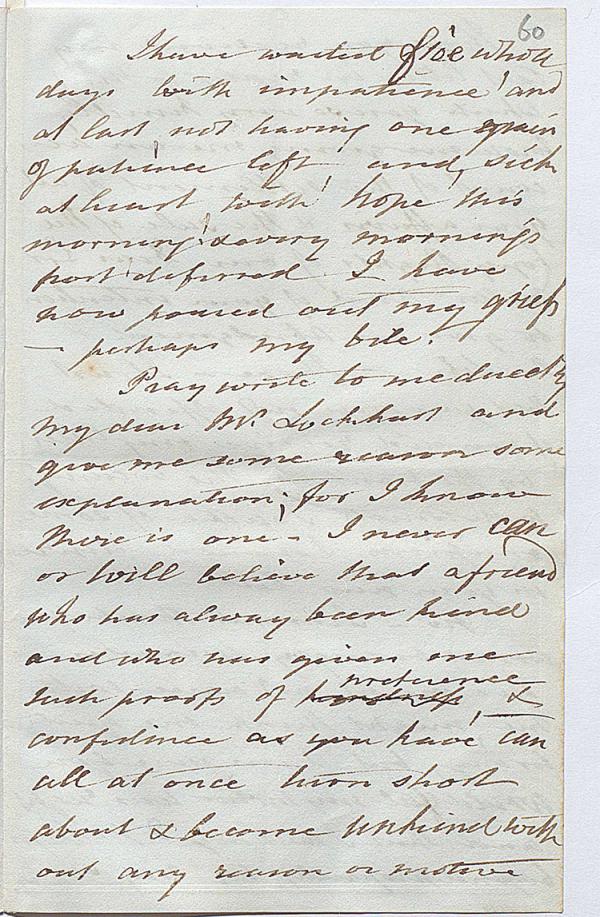 60
I have waited five whole
days with impatience! and
at last not having one grain
of patience left, and, sick
at heart with hope this
morning! & every morning's
post deferred I have
now poured out my grief
— perhaps my bile.
Pray write to me directly
my dear Mr. Lockhart and
give me some reason some
explanation; for I know
there is one - I never can
or will believe that a friend
who has alway been kind
and who has given one
such proofs of kindness preference, &
confidence as you have can
all at once turn short
about & become unkind with
out any reason or motive